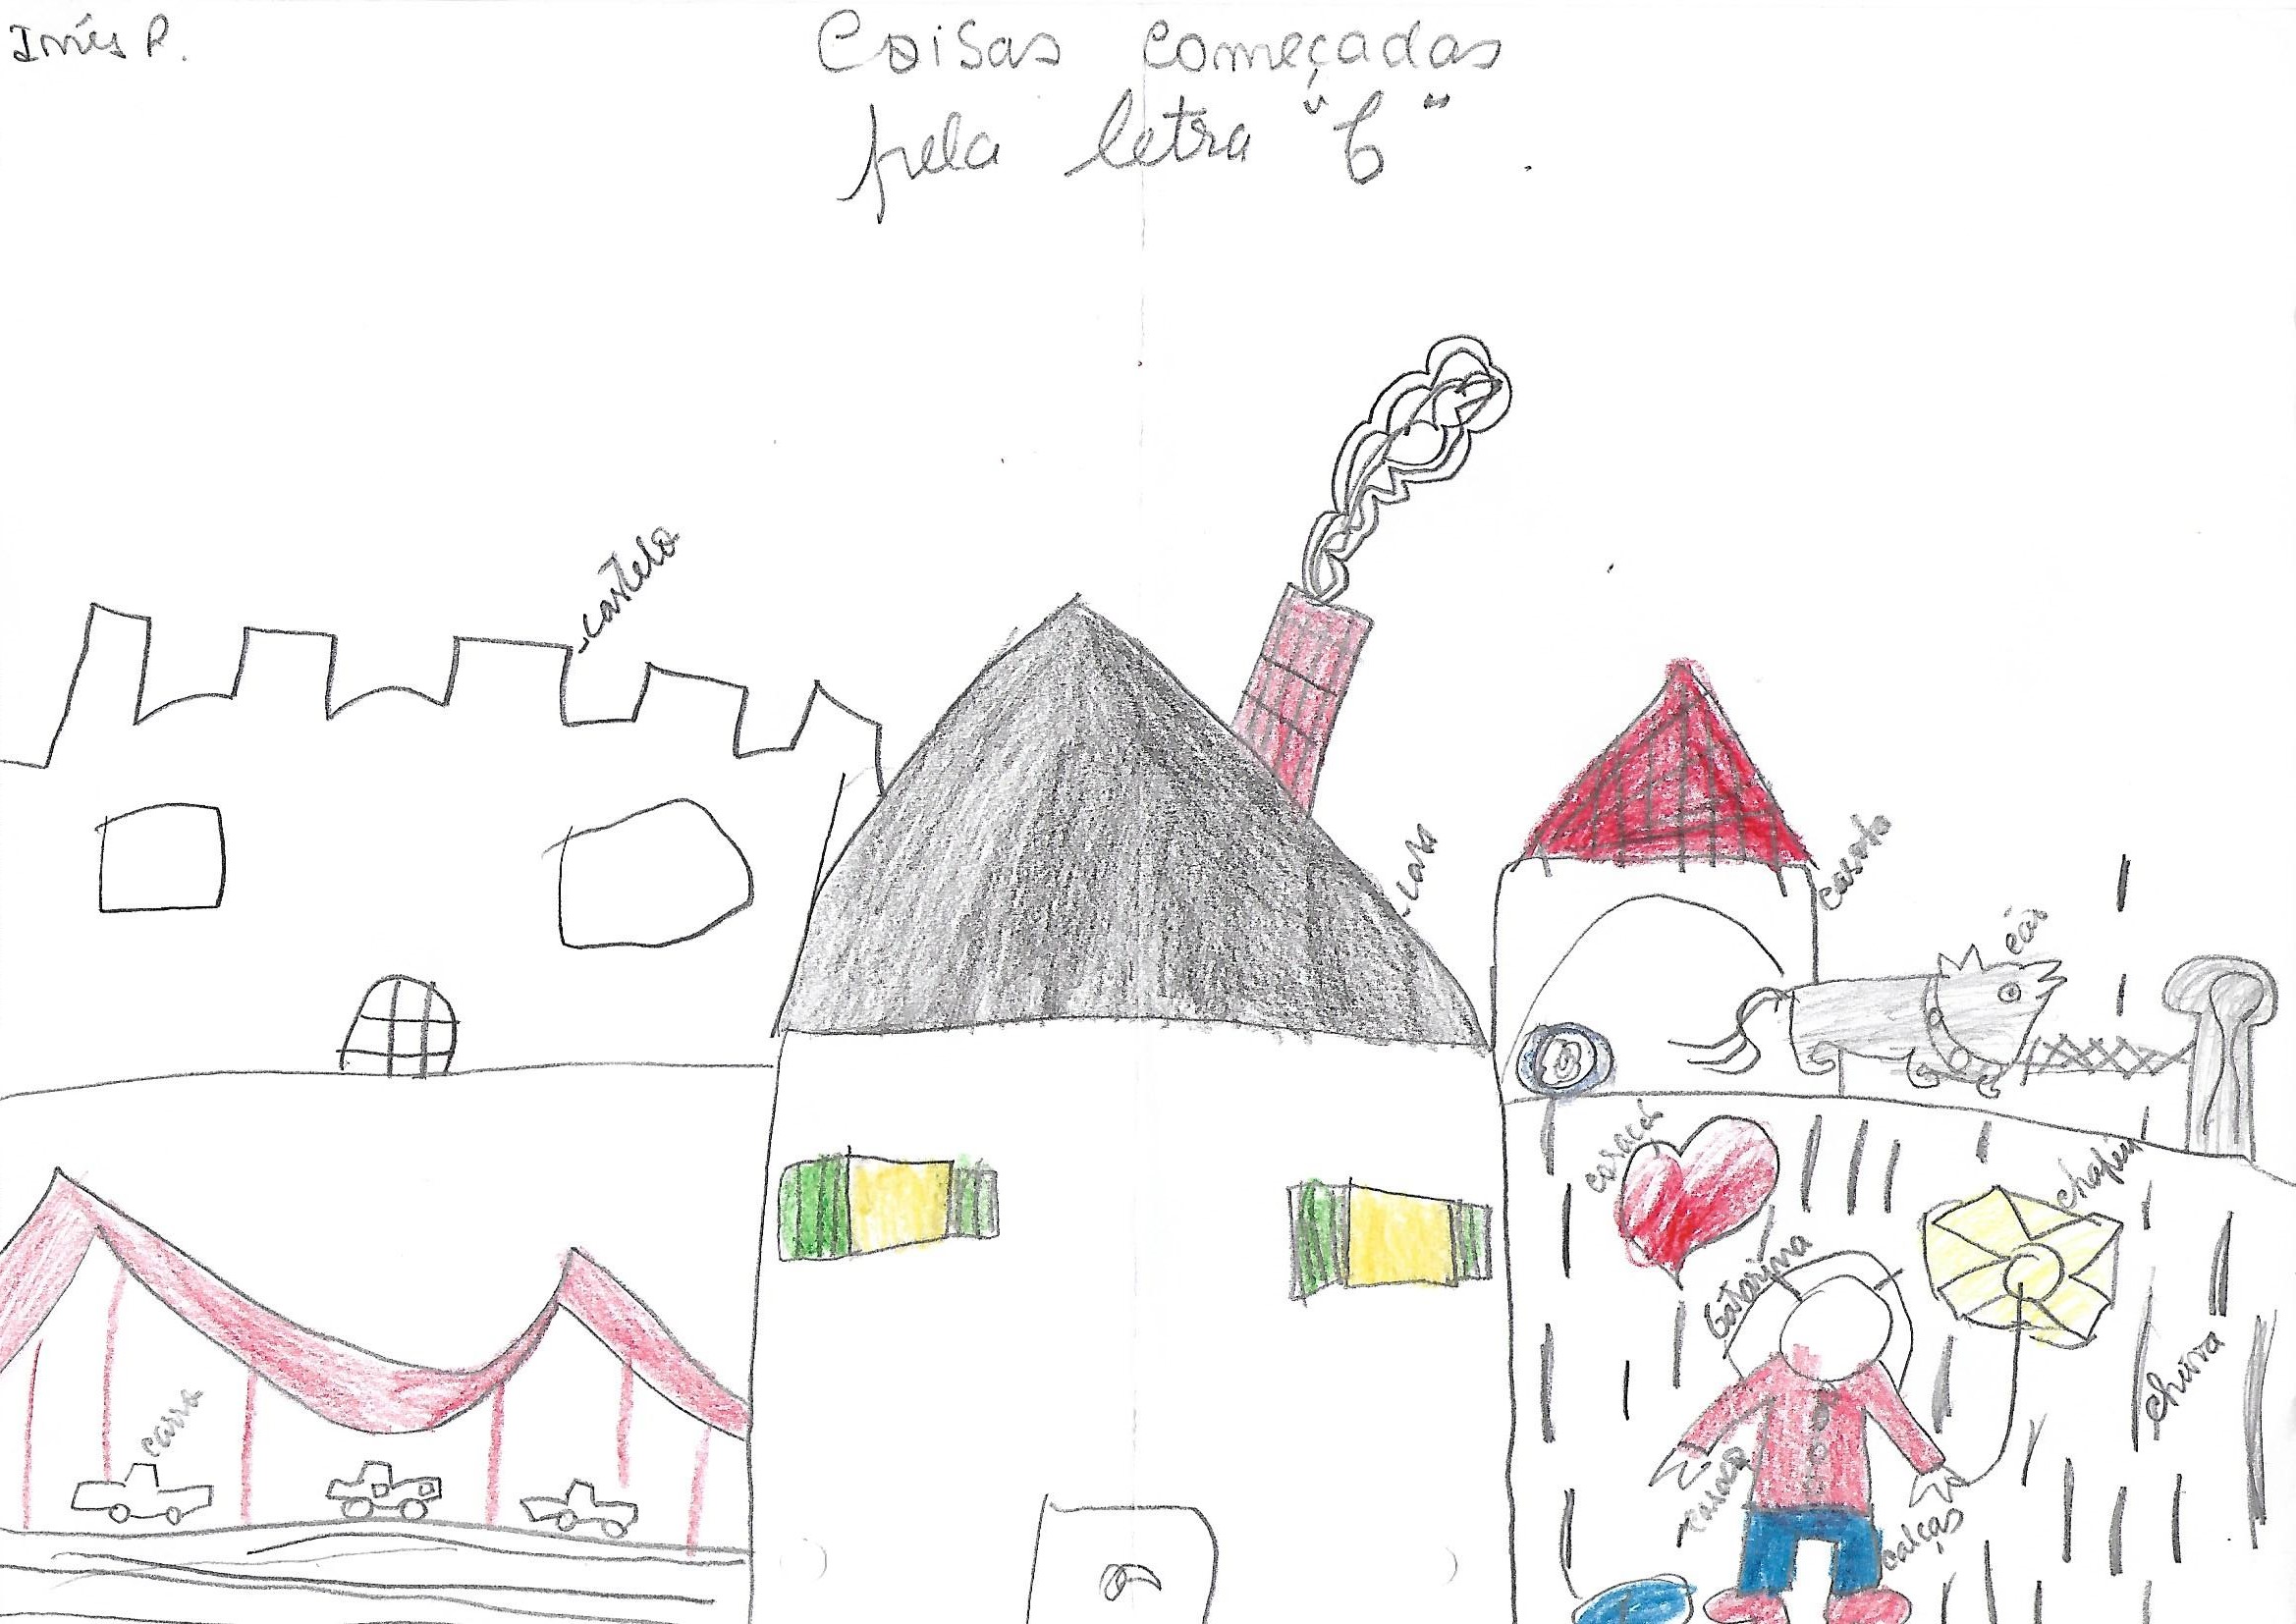 Inês P.
Coisas começadas
pela letra "C".
castelo
casa
casota
cão
coração
chapéu
Catarina
chuva
carro
casaco
calças